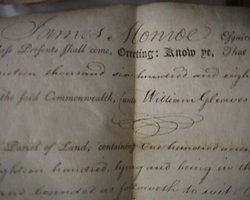 James Monroe Esquire
Presents shall come, Greeting: Know ye, That
thousand six hundred and eigh
the said Commonwealth, unto William
Parcel of Land, containing One hundred acres,
hundred, lying and being in th
and bounded as followeth to wit